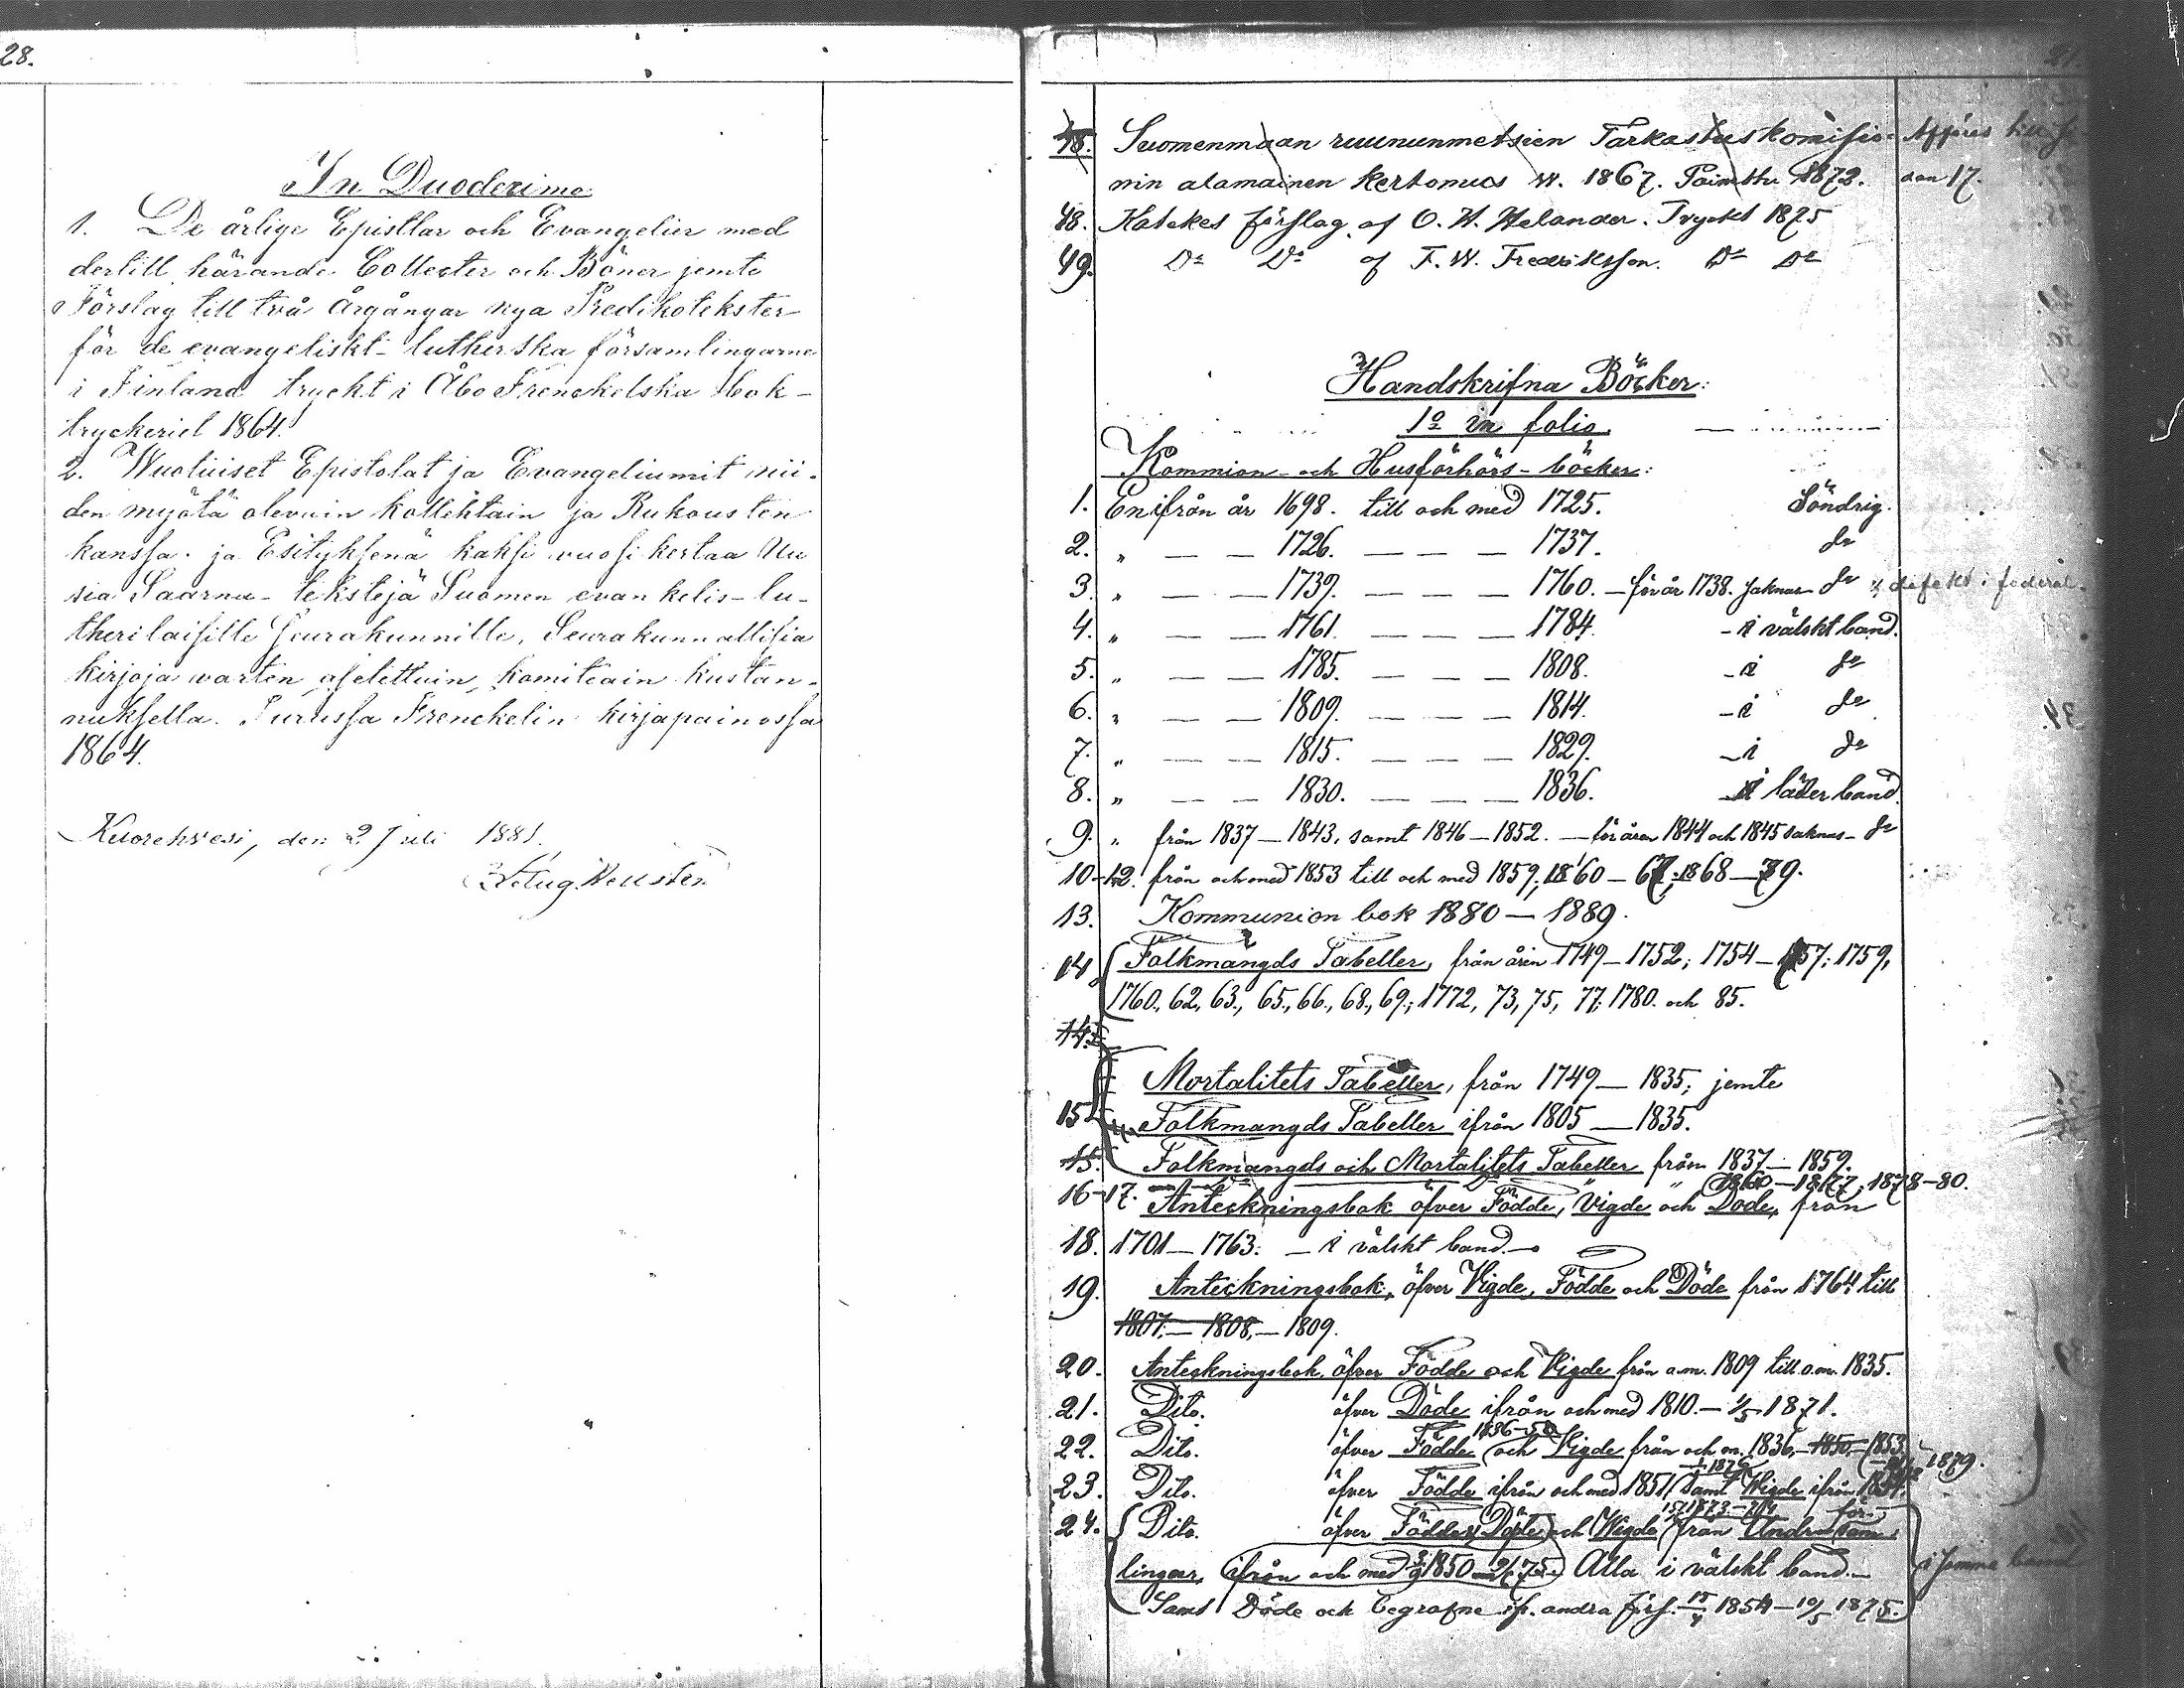 28.
In Duodecimo:
1. De årlige Epistlar och Evangelier med
dertill hörande Collecter och Böner jemte
Förslag till två Årgångar nya Predikotekster
för de evangeliskt-lutherska församlingarne
i Finland tryckt i Åbo Frenckelska bok-
tryckeriet 1864.
2. Wuotiuiset Epistolat ja Evangeliumit nii-
den myötä olevain kollehtain ja Rukousten
kanssa. ja Esityksenä kaksi vuosi kertaa Uu
sia Saarna-tekstejä Suomen evankelis-lu-
therilaisille Seurakunnille, Seurakunnallisia
kirjoja warten asetettuin komiteain kustan-
nuksella. Turussa Frenckelin kirjapainossa
1864.
Kuorehvesi, den 2 Juli 1881.
48. Suomenmaan ruununmetsien Tarkastuskomisio-
nin alamainen Kertomus w. 1867. Painettu 1872.
don 17.
48. Katekes förslag af O. H. Helander. Tryckt 1875
49. Do Do af F. W. Fredriksson. Do Do
Handskrifna Böcker:
1o in folio.
Kommion- och Husförhörs-böcker:
1. En ifrån år 1698. till och med 1725. Söndrig.
2. „ — — 1726. — — — 1737. do
3. „ — — 1739. — — — 1760. — för år 1738. saknas do defekt i föderal.
4. „ — — 1761. — — — 1784. - i välskt band.
5. „ — — 1785. — — — 1808. - i do
6. „ — — 1809. — — — 1814. - i do
7. „ — — 1815. — — — 1829. - i do
8. „ — — 1830. — — — 1836. - i läder band.
9. „ från 1837—1843, samt 1846—1852. — för åren 1844 och 1845 saknas - do
10-12. från och med 1853 till och med 1859; 1860—67; 1868—79.
13. Kommunion bok 1880—1889.
14 Folkmängds Tabeller, från åren 1749—1752; 1754—1757; 1759,
1760., 62, 63., 65., 66., 68., 69.; 1772, 73, 75, 77; 1780. och 85.
14.
Mortalitets Tabeller, från 1749—1835; jemte
15 Folkmängds Tabeller ifrån 1805—1835.
15. Folkmängds och Mortalitets Tabeller från 1837—1859.
1860—1877; 1878-80.
16-17. Anteckningsbok öfver Födde, Vigde och Döde, från
18. 1701—1763. — i välskt band.
19. Anteckningsbok, öfver Vigde, Födde och Döde från 1764 till
1807.—1808.—1809.
20. Anteckningsbok öfver Födde och Vigde från o.m. 1809 till o.m. 1835.
21. Dito. öfver Döde ifrån och med 1810.— 1/5 1871.
1836-50
22. Dito. öfver Födde och Vigde från och m. 1836,—1850—1853
1879.
23. Dito. öfver Födde ifrån och med 1851 samt Wigde ifrån 1854
för-
24. Dito. öfver Födde, Döpte och Wigde från Andra sam
lingar, ifrån och med 1850 Alla i välskt band.—
i samma band
Samt Döde och begrafne if. andra förs. 15/4 1854—10/5 1875.